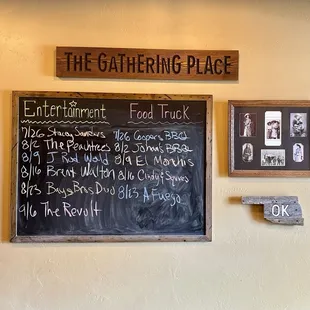 THE GATHERING PLACE
Entertainment Food Truck
7/26 Stacey Sanders 7/26 Coopers BBQ
8/2 The Peachtrees 8/2 John's BBQ
8/9 J Rod Wald 8/9 El Monchis
8/16 Brent Walton 8/16 Cindy &
8/23 Bays Bas Duo 8/23 A Fuego
9/6 The Revolt
OK